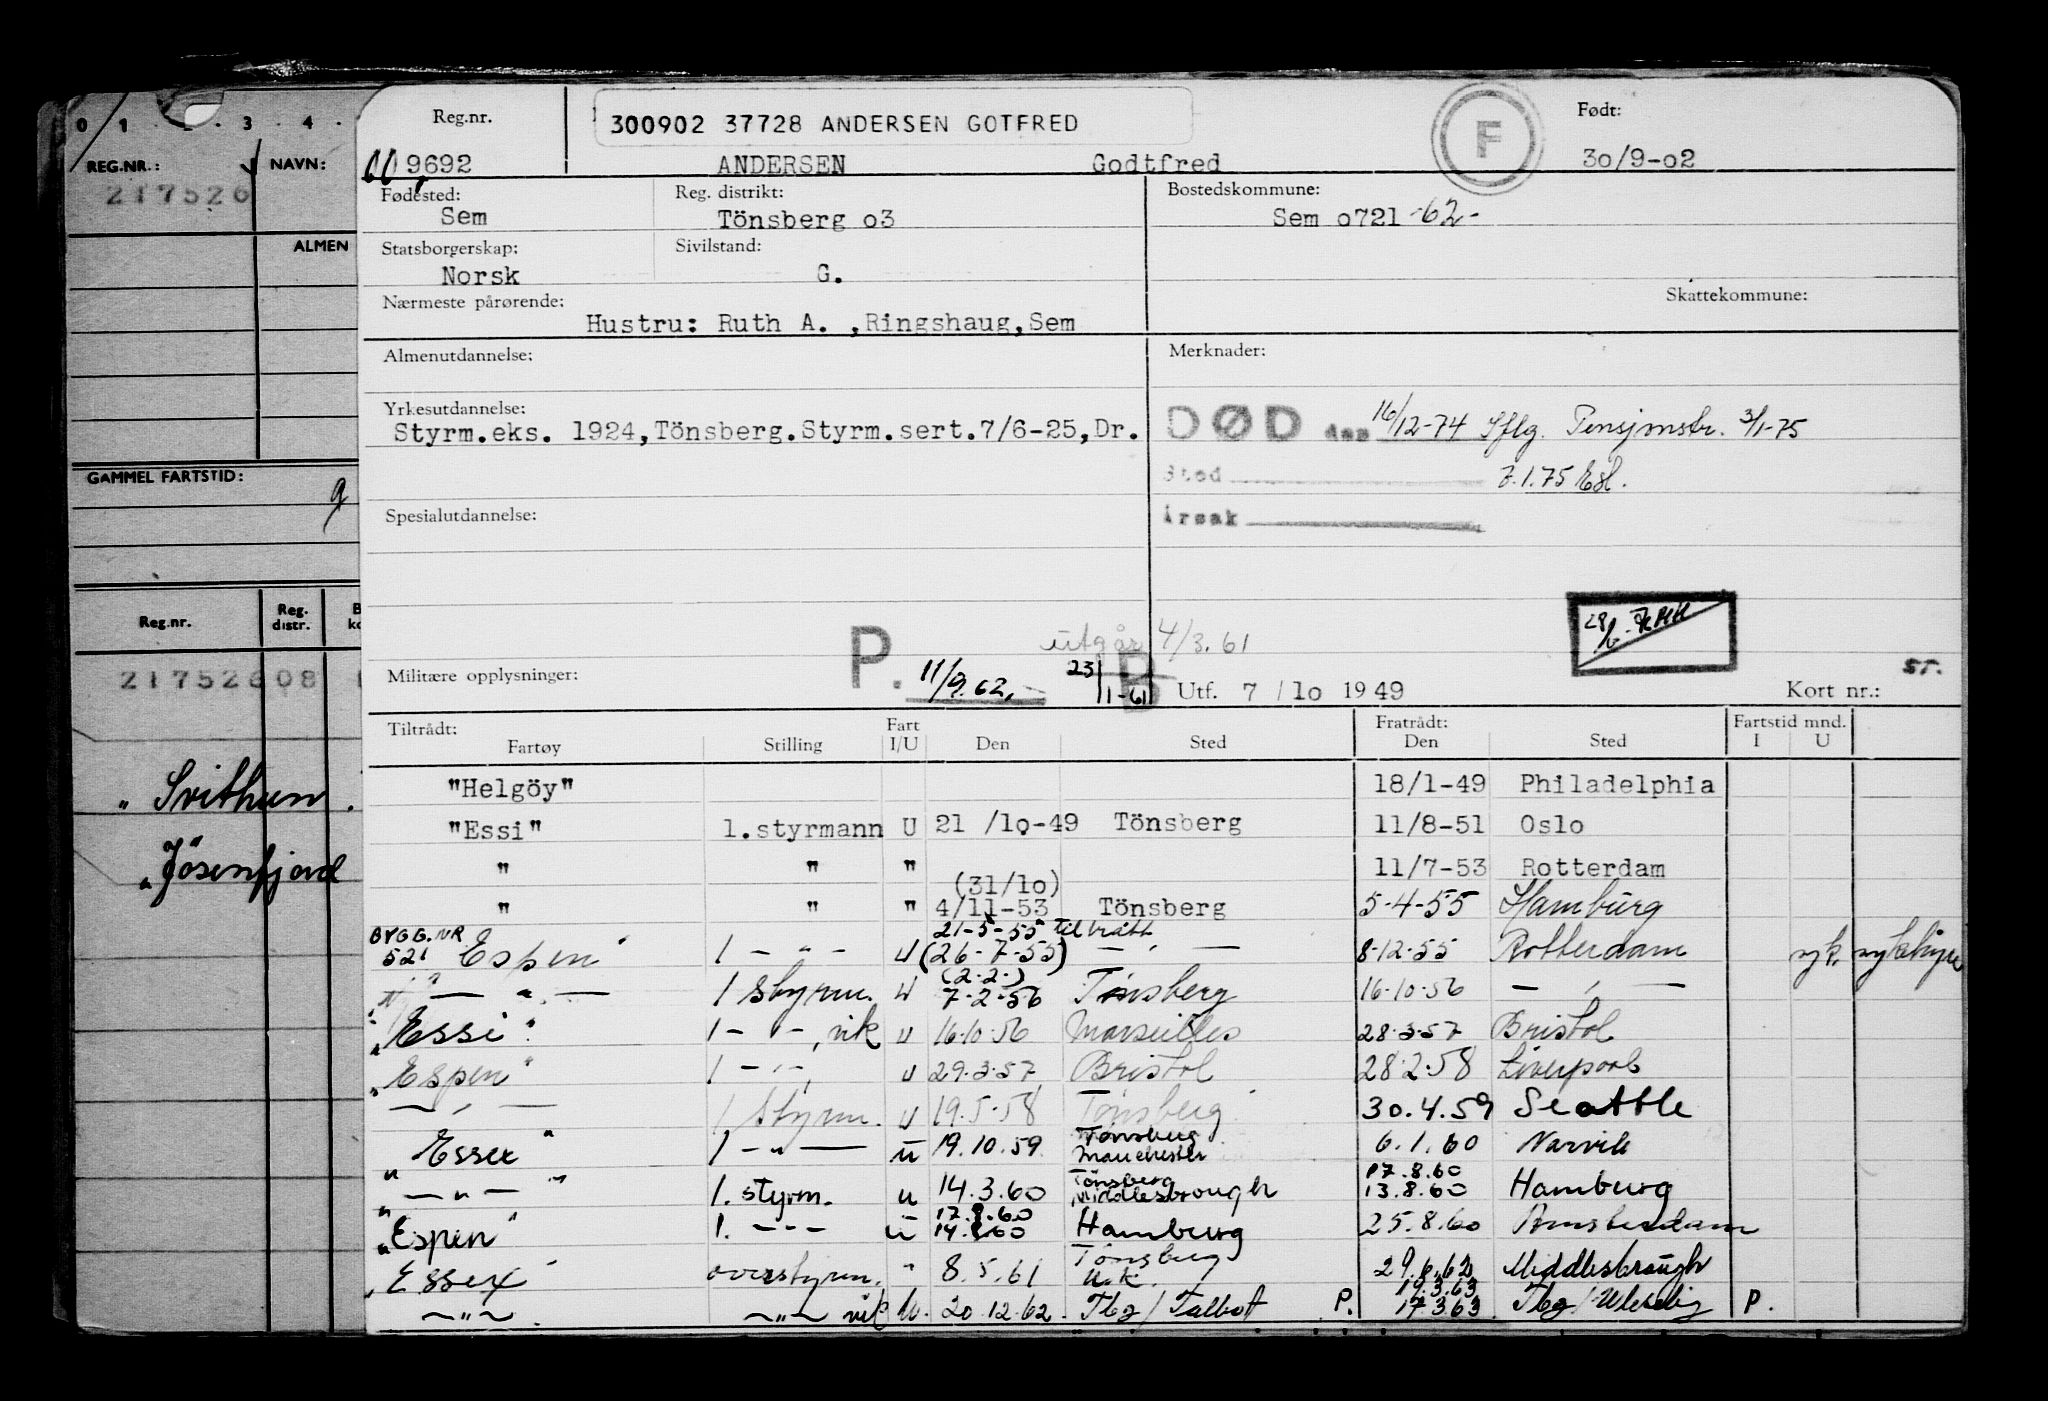 0 1 3 4
REG.NR.: NAVN:
217526
ALMEN
GAMMEL FARTSTID:
g
Reg.nr. Reg. distr.
21752608
"Svithun
"Jösenfjord
Reg.nr. 300902 37728 ANDERSEN GOTFRED F Født:
9692 ANDERSEN Godtfred 30/9-02
Fødested: Reg. distrikt: Bostedskommune:
Sem Tönsberg o3 Sem o721 -62-
Statsborgerskap: Sivilstand:
Norsk G.
Nærmeste pårørende: Skattekommune:
Hustru: Ruth A. ,Ringshaug,Sem
Almenutdannelse: Merknader:
Yrkesutdannelse:
Styrm.eks. 1924,Tönsberg.Styrm.sert.7/6-25,Dr. DØD den 16/12-74 Iflg. Pensjonstr. 3/1-75
Sted 7.1.75
Spesialutdannelse: Årsak
utgår 4/3.61
Militære opplysninger: P. 11/9.62. 23/1-61 B Utf. 7 /10 1949 Kort nr.:
Tiltrådt: Fart Fratrådt: Fartstid mnd.
Fartøy Stilling I/U Den Sted Den Sted I U
"Helgöy" 18/1-49 Philadelphia
"Essi" 1.styrmann U 21 /10-49 Tönsberg 11/8-51 Oslo
" " " 11/7-53 Rotterdam
(31/10)
" " " 4/11-53 Tönsberg 5-4-55 Hamburg
BYGG.NR 21-5-55 tiltrått
521 Espen" 1 - " - U (26-7-55) — " — 8-12-55 Rotterdam syk.
(2.2.)
— " — 1 styrm. U 7-2-56 Tønsberg 16-10-56 — " —
"Essi" 1 - " -, vik U 16.10.56 Marseilles 28.3.57 Bristol
"Espen" 1 - " - U 29.3.57 Bristol 28.2.58 Liverpool
— " — 1 styrm. U 19.5.58 Tönsberg 30.4.59 Seattle
"Essex" 1 - " - U 19.10.59 Tönsberg Manchester 6.1.60 Narvik
17.8.60
"— " —" 1. styrm. U 14.3.60 Tönsberg Middlesbrough 13.8.60 Hamburg
17.8.60
"Espen" 1. - - - U 14.8.60 Hamburg 25.8.60 Amsterdam
"Essex" overstyrm. " 8.5.61 Tönsberg U.K. 29.6.62 Middlesbrough
19.3.63
— " — — " — vik U. 20.12.62 Tbg/Talbot P. 17.3.63 Tbg/ P.